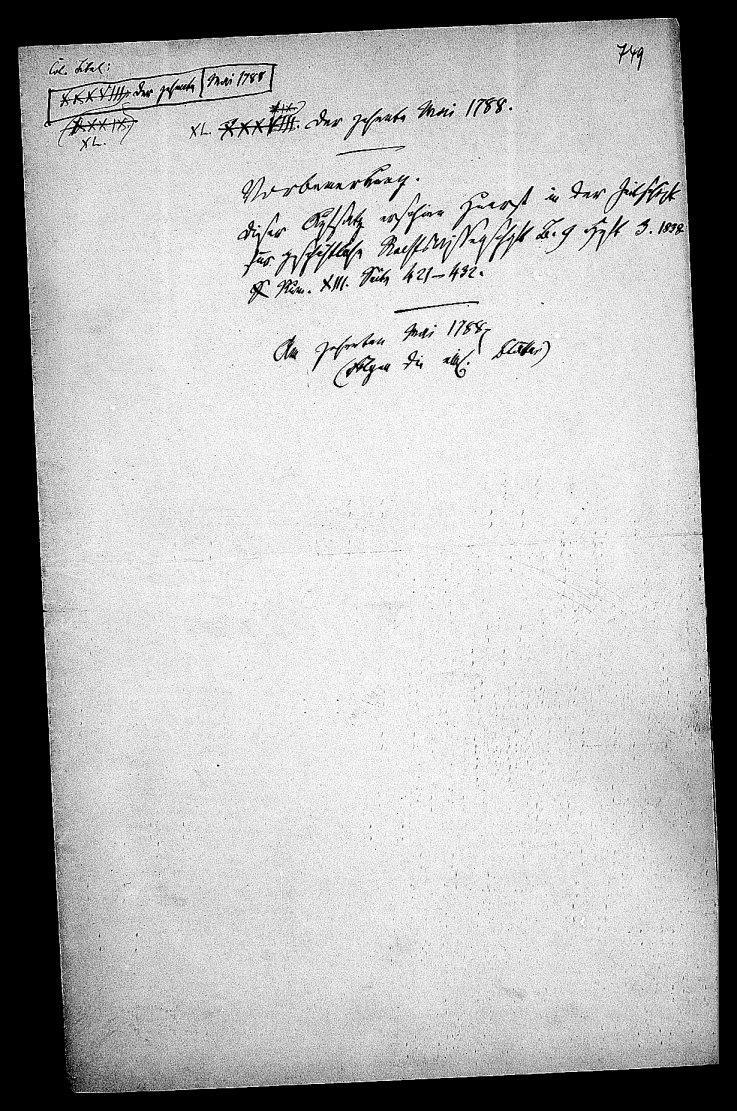 749
Col. Titel:
XXXVIII. Der zehnte | Mai 1788
(XXXIX)
XL.
XL. XXXVIII. Der zehnte Mai 1788.
XIX
Vorbemerkung.
Dieser Aufsatz erschien zuerst in der Zeitschrift
für geschichtliche Rechtswissenschaft B. 9 Heft 3. 1838
Num. XIII. Seite 421–432.
Am zehnten Mai 1788
(folgen die einz. Blätter)